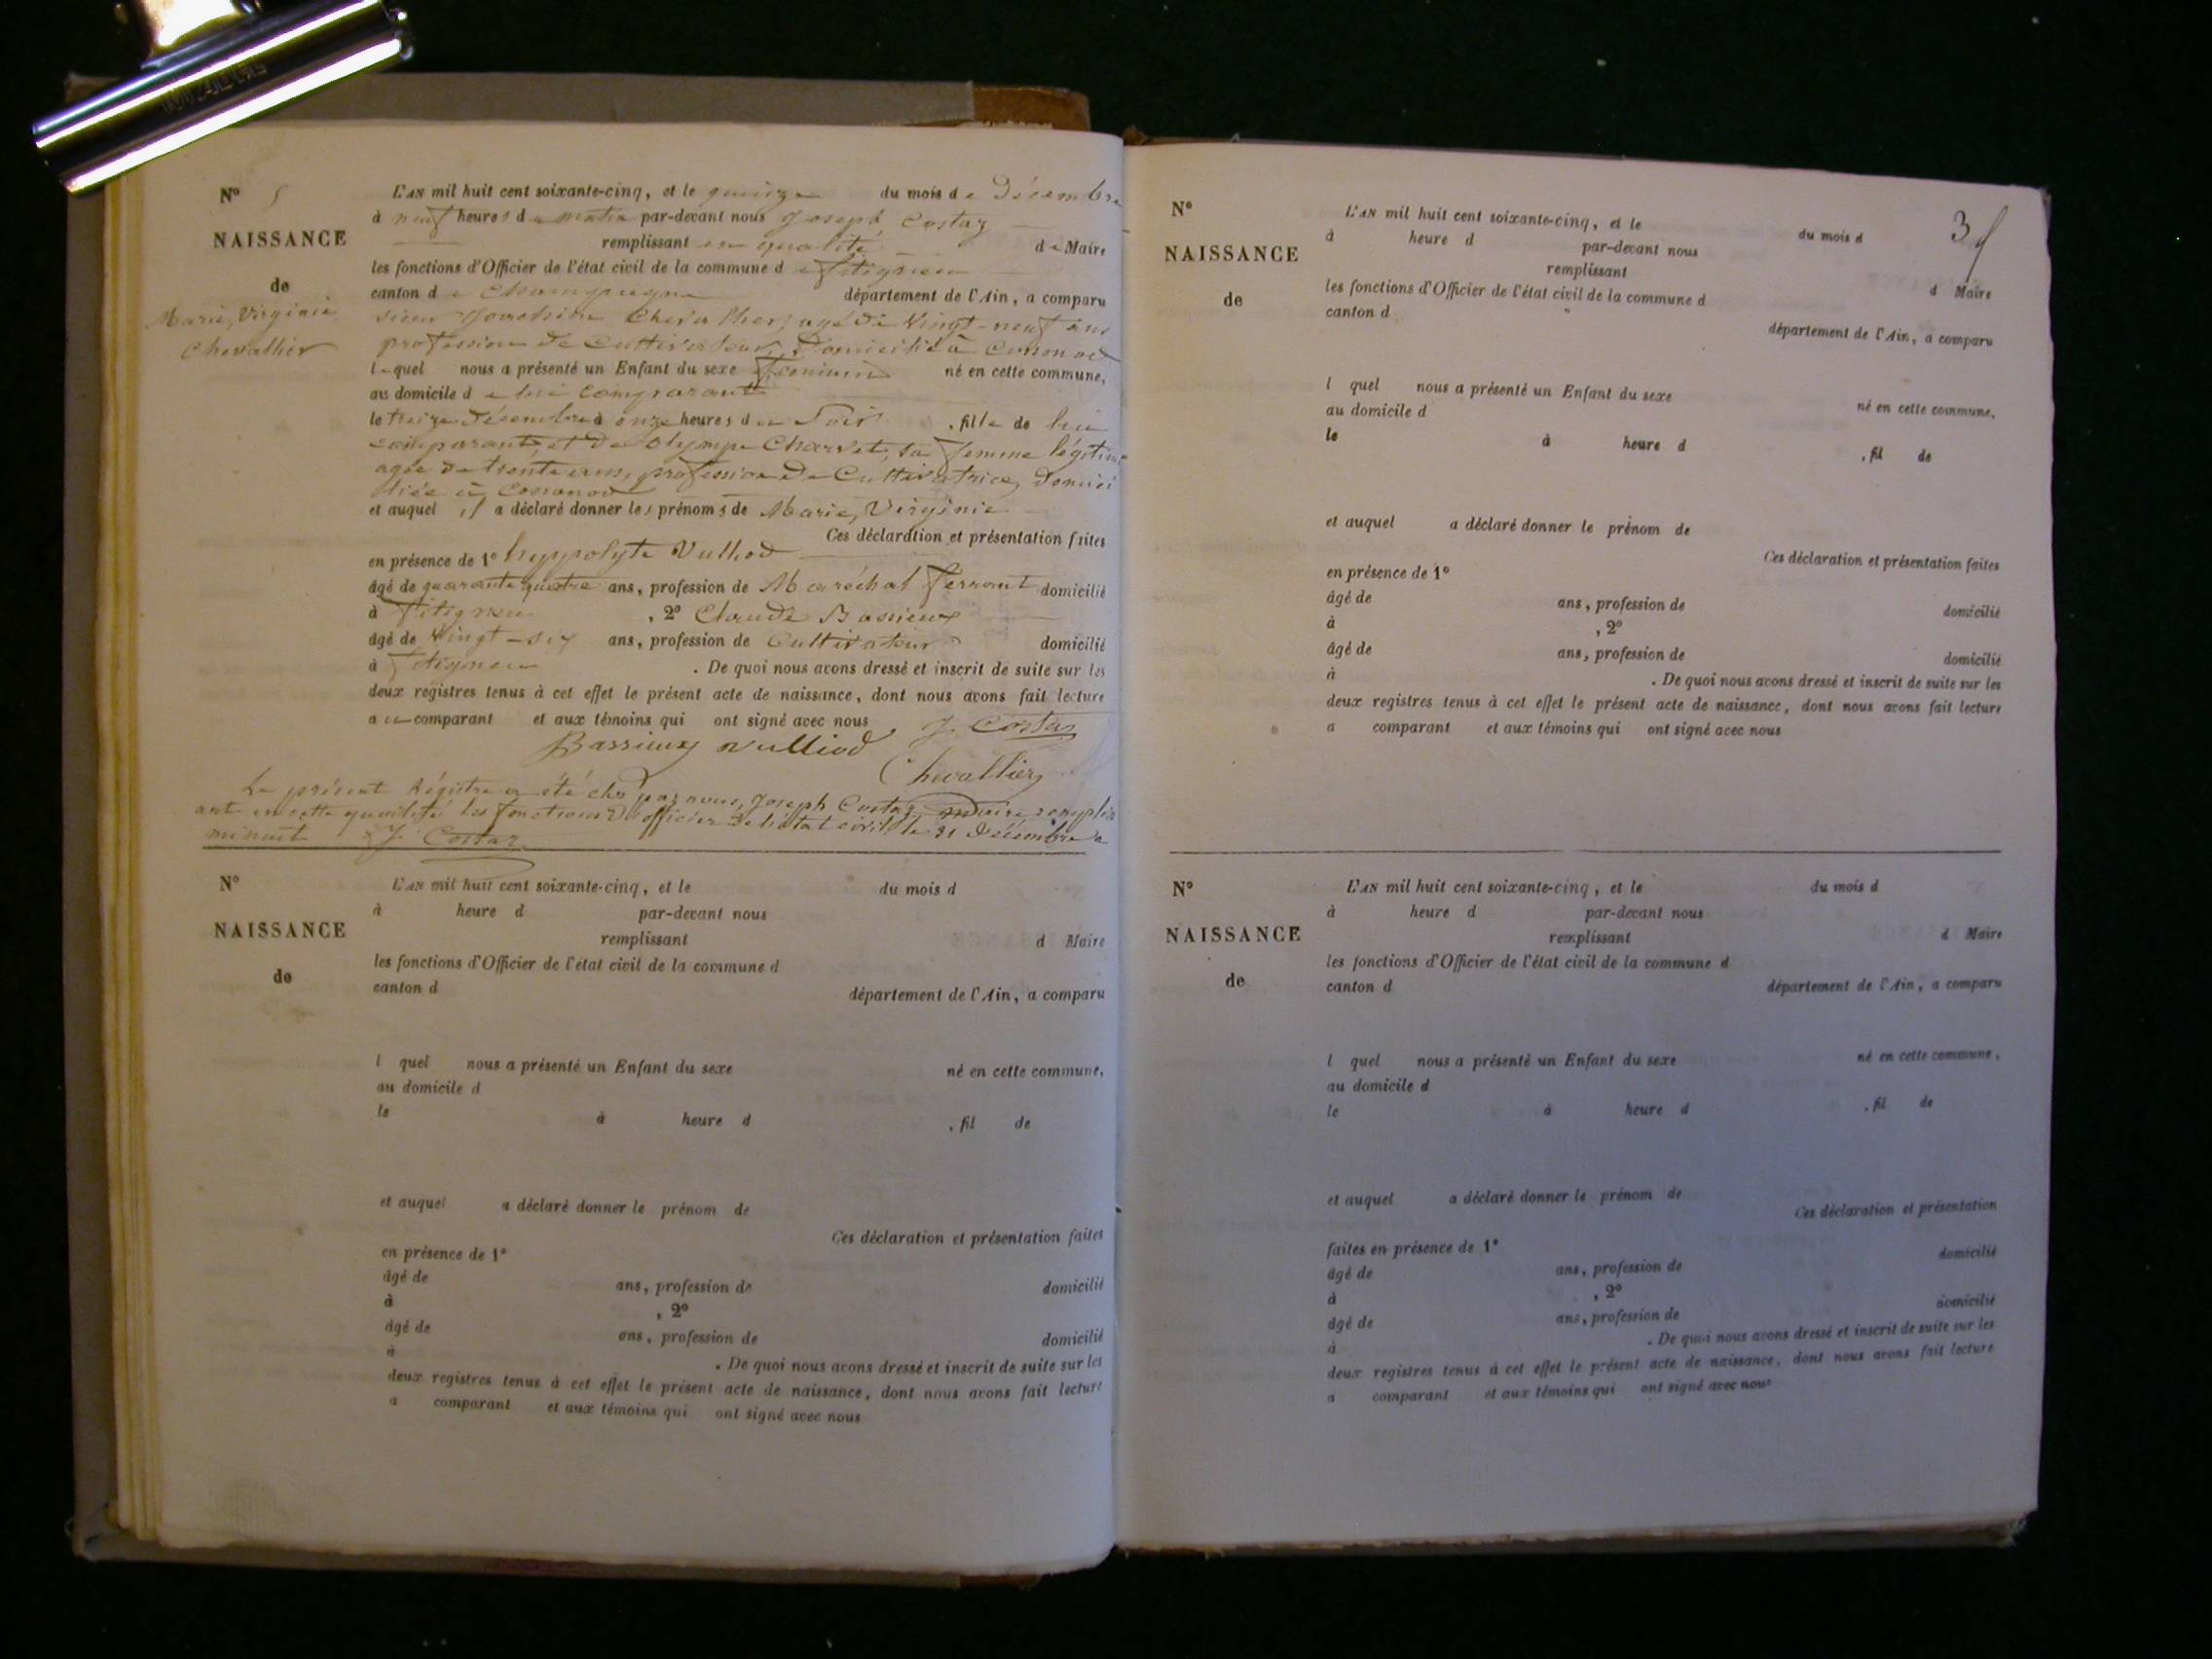 N° 5
NAISSANCE
de
Marie, Virginie
Chevallier
L'AN mil huit cent soixante-cinq, et le quinze du mois de Décembre
à neuf heures du matin par-devant nous Joseph Costaz
remplissant en qualité de Maire
les fonctions d'Officier de l'état civil de la commune de fitignieu
canton de Champagne département de l'Ain, a comparu
sieur Joachim Chevallier, agé de vingt-neuf ans
profession de cultivateur, Domicilié à
lequel nous a présenté un Enfant du sexe feminin né en cette commune,
au domicile de lui comparant
le treize Décembre à onze heures du Soir, fille de lui
comparant, et de Olympe Charvet, sa femme légitime
agée de trente ans, profession de Cultivatrice, domici
liée à
et auquel il a déclaré donner les prénoms de Marie, Virginie
Ces déclaration et présentation faites
en présence de 1° hyppolyte Vulliod
âgé de quarante quatre ans, profession de Maréchal ferrant domicilié
à fitignieu, 2° Claude Bassieux
âgé de Vingt-six ans, profession de Cultivateur domicilié
à fitignieu. De quoi nous avons dressé et inscrit de suite sur les
deux registres tenus à cet effet le présent acte de naissance, dont nous avons fait lecture
au comparant et aux témoins qui ont signé avec nous J. Costaz
Bassieux Vulliod
Chevallier
Le présent Régistre a été clos par nous, Joseph Costaz, maire remplis
ant en cette qualité les fonctions d'officier de l'état civil le 31 Décembre à
minuit J. Costaz
N°
NAISSANCE
de
L'AN mil huit cent soixante-cinq, et le du mois d
à heure d par-devant nous
remplissant d Maire
les fonctions d'Officier de l'état civil de la commune d
canton d département de l'Ain, a comparu
l quel nous a présenté un Enfant du sexe né en cette commune,
au domicile d
le à heure d , fil de
et auquel a déclaré donner le prénom de
Ces déclaration et présentation faites
en présence de 1°
âgé de ans, profession de domicilié
à , 2°
âgé de ans, profession de domicilié
à . De quoi nous avons dressé et inscrit de suite sur les
deux registres tenus à cet effet le présent acte de naissance, dont nous avons fait lecture
a comparant et aux témoins qui ont signé avec nous
3
N°
NAISSANCE
de
L'AN mil huit cent soixante-cinq, et le du mois d
à heure d par-devant nous
remplissant d Maire
les fonctions d'Officier de l'état civil de la commune d
canton d département de l'Ain, a comparu
l quel nous a présenté un Enfant du sexe né en cette commune,
au domicile d
le à heure d , fil de
et auquel a déclaré donner le prénom de
Ces déclaration et présentation faites
en présence de 1°
âgé de ans, profession de domicilié
à , 2°
âgé de ans, profession de domicilié
à . De quoi nous avons dressé et inscrit de suite sur les
deux registres tenus à cet effet le présent acte de naissance, dont nous avons fait lecture
a comparant et aux témoins qui ont signé avec nous
N°
NAISSANCE
de
L'AN mil huit cent soixante-cinq, et le du mois d
à heure d par-devant nous
remplissant d Maire
les fonctions d'Officier de l'état civil de la commune d
canton d département de l'Ain, a comparu
l quel nous a présenté un Enfant du sexe né en cette commune,
au domicile d
le à heure d , fil de
et auquel a déclaré donner le prénom de
Ces déclaration et présentation
faites en présence de 1° domicilié
âgé de ans, profession de
à , 2° domicilié
âgé de ans, profession de
à . De quoi nous avons dressé et inscrit de suite sur les
deux registres tenus à cet effet le présent acte de naissance, dont nous avons fait lecture
a comparant et aux témoins qui ont signé avec nous